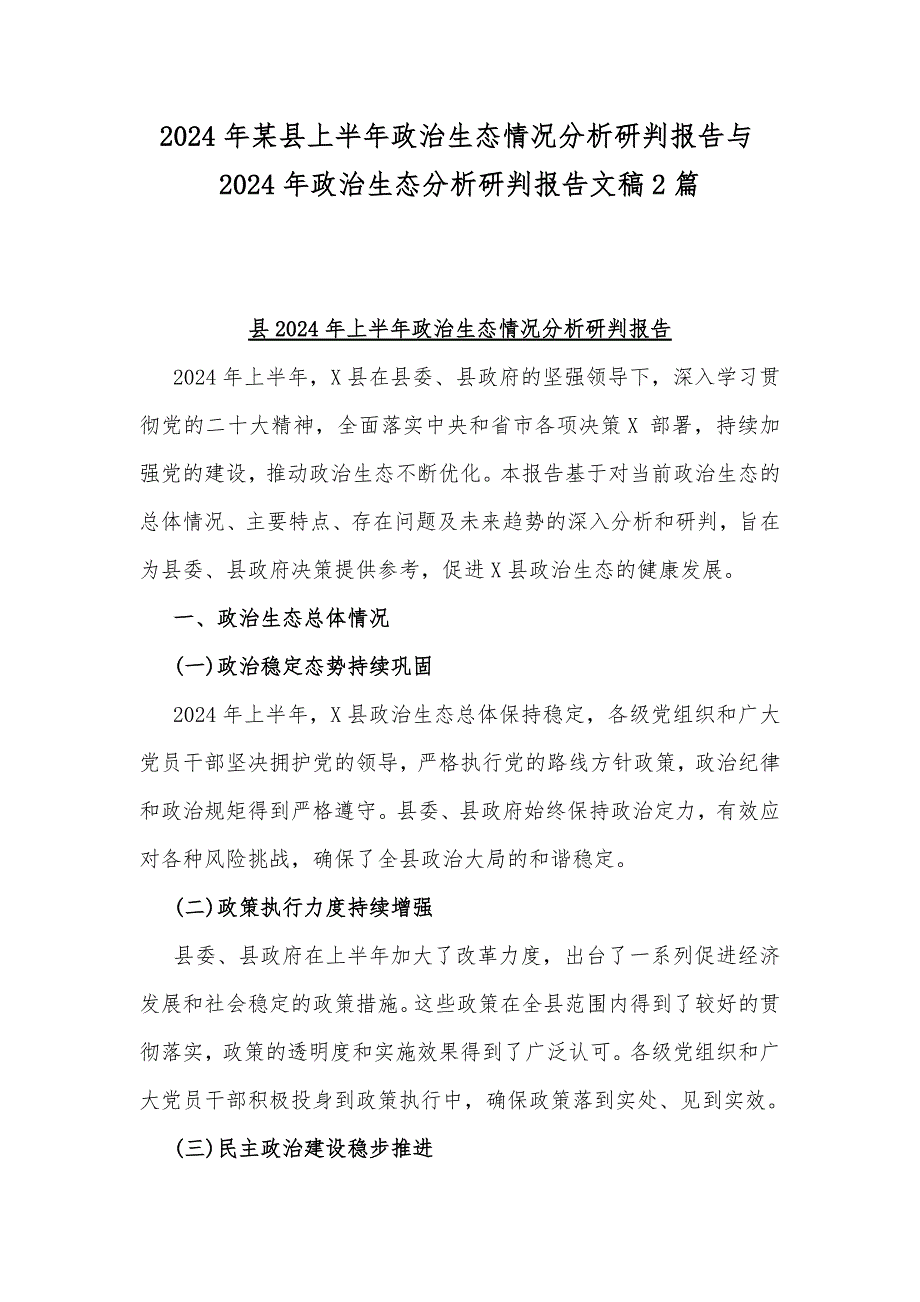 2024年某县上半年政治生态情况分析研判报告与
2024年政治生态分析研判报告文稿2篇
县2024年上半年政治生态情况分析研判报告
2024年上半年，X县在县委、县政府的坚强领导下，深入学习贯
彻党的二十大精神，全面落实中央和省市各项决策X 部署，持续加
强党的建设，推动政治生态不断优化。本报告基于对当前政治生态的
总体情况、主要特点、存在问题及未来趋势的深入分析和研判，旨在
为县委、县政府决策提供参考，促进X县政治生态的健康发展。
一、政治生态总体情况
(一)政治稳定态势持续巩固
2024年上半年，X县政治生态总体保持稳定，各级党组织和广大
党员干部坚决拥护党的领导，严格执行党的路线方针政策，政治纪律
和政治规矩得到严格遵守。县委、县政府始终保持政治定力，有效应
对各种风险挑战，确保了全县政治大局的和谐稳定。
(二)政策执行力度持续增强
县委、县政府在上半年加大了改革力度，出台了一系列促进经济
发展和社会稳定的政策措施。这些政策在全县范围内得到了较好的贯
彻落实，政策的透明度和实施效果得到了广泛认可。各级党组织和广
大党员干部积极投身到政策执行中，确保政策落到实处、见到实效。
(三)民主政治建设稳步推进